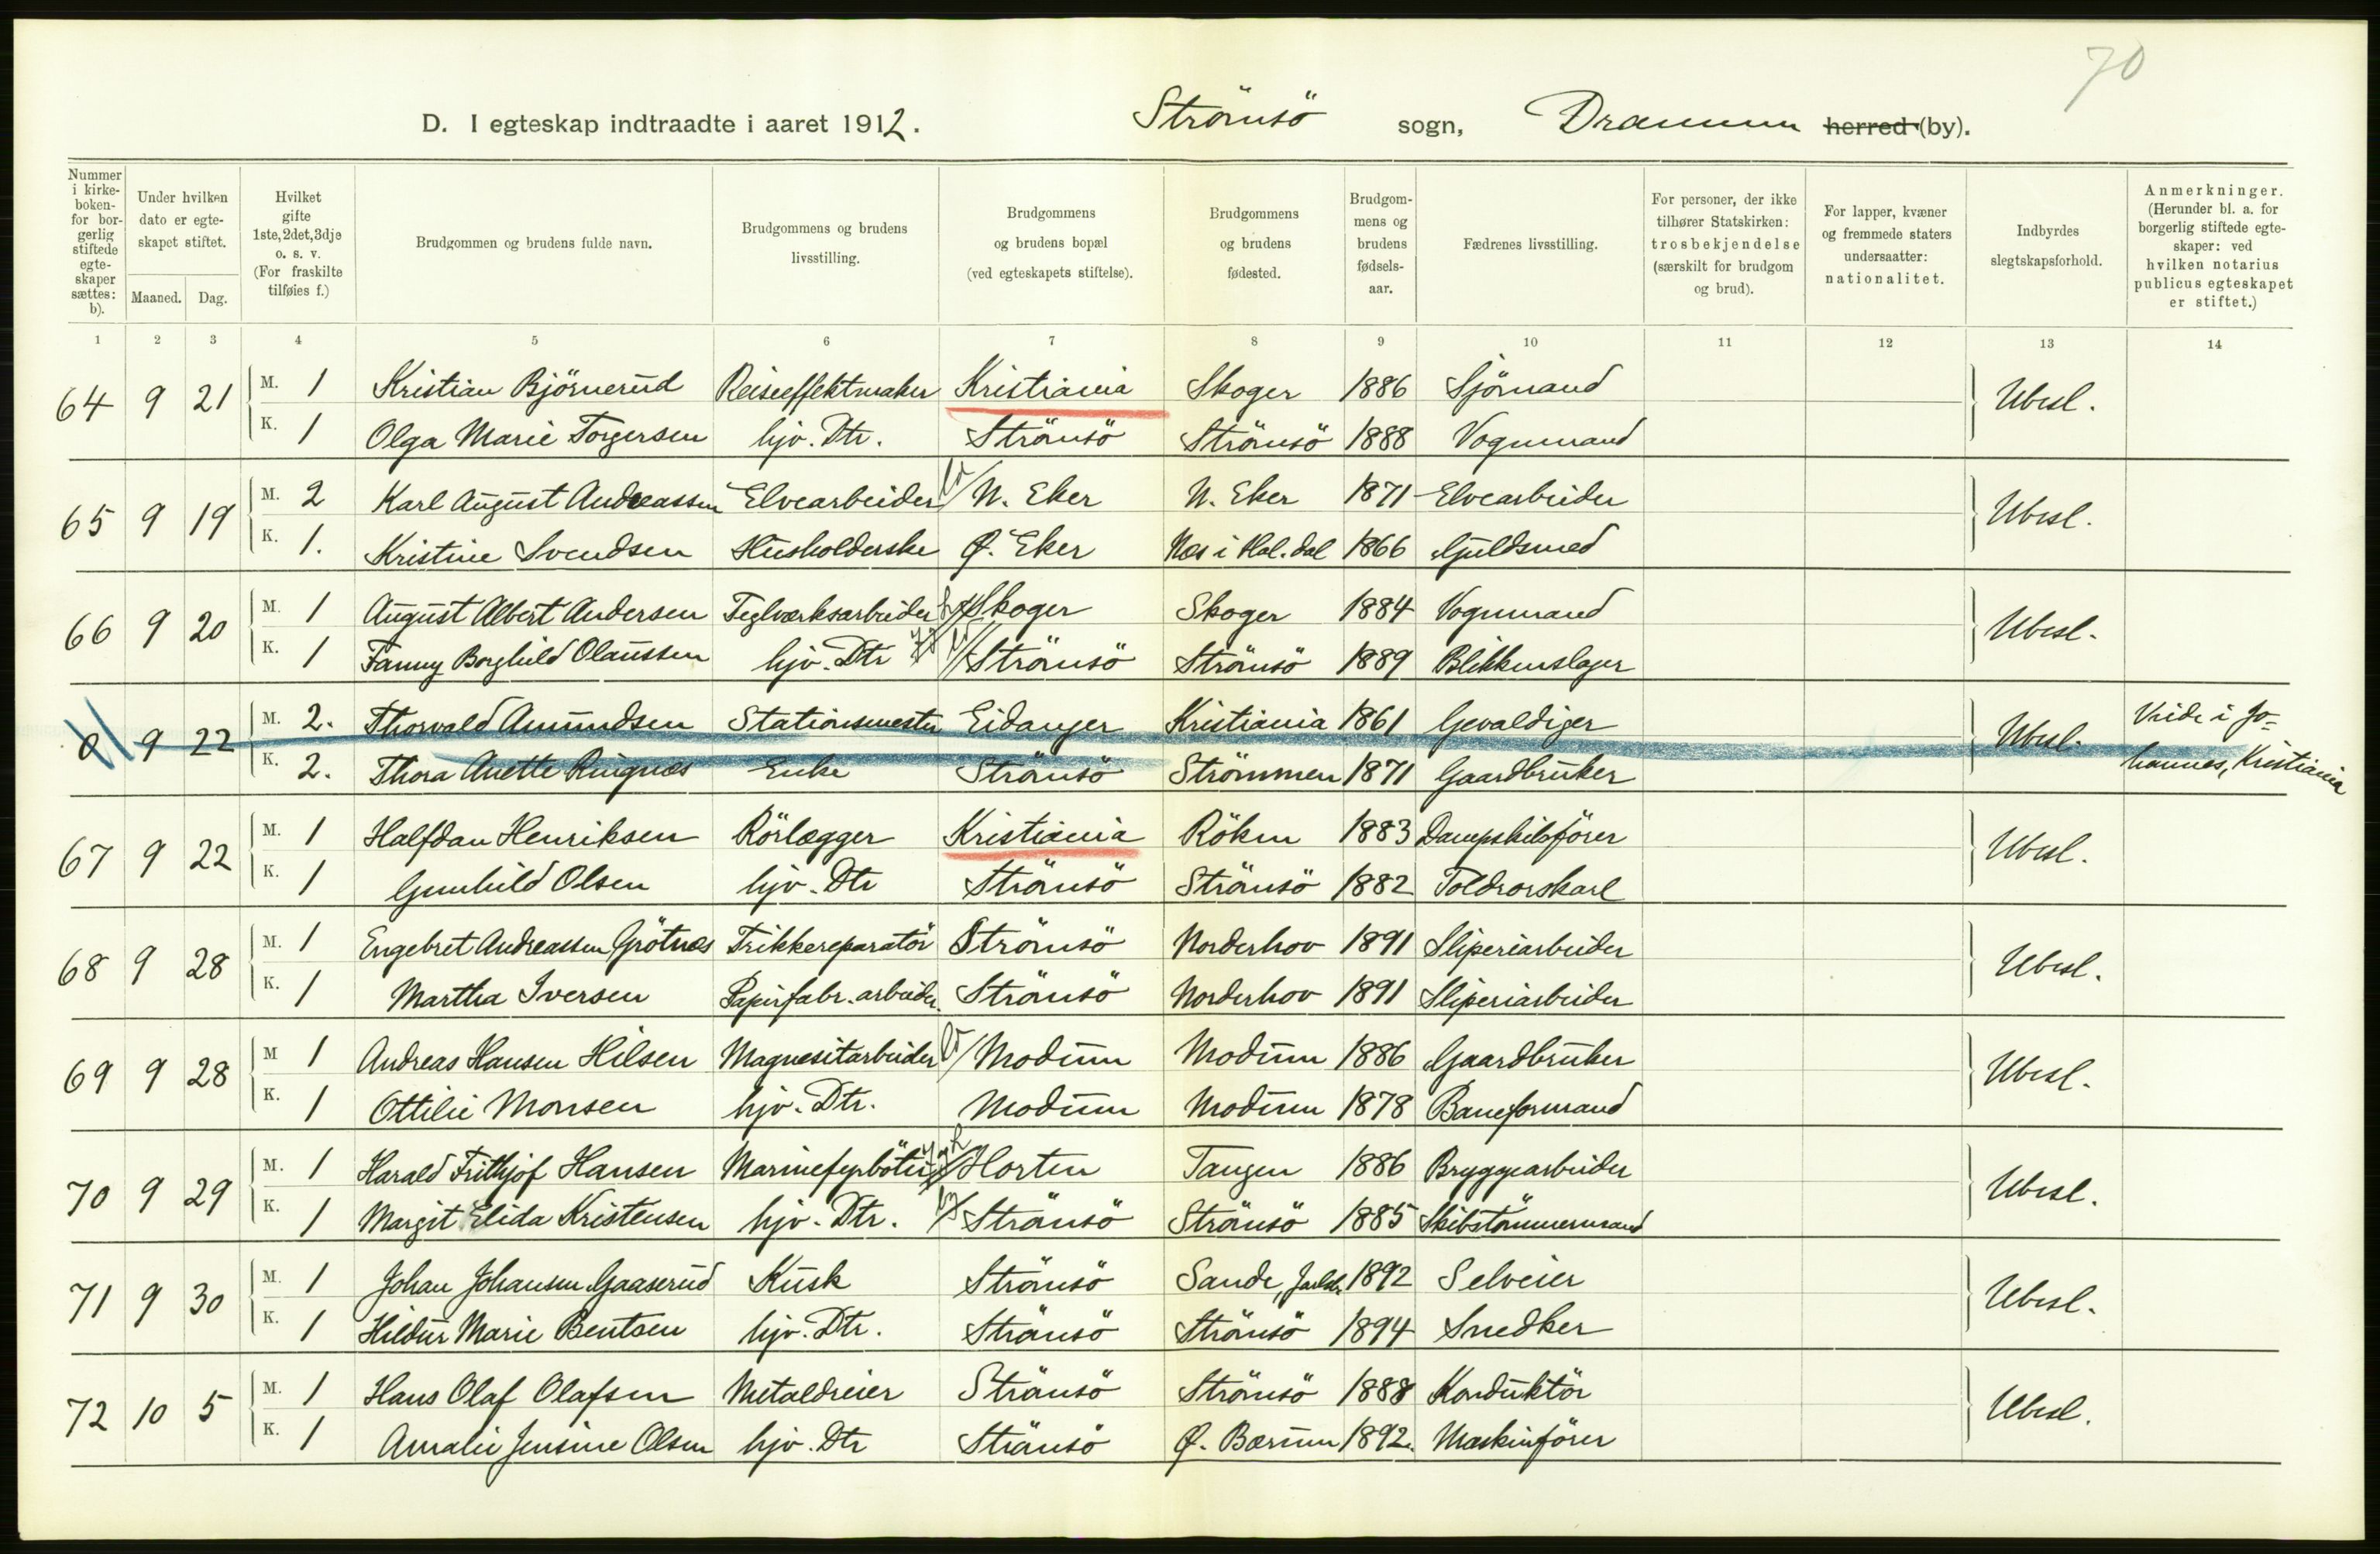 70
D. I egteskap indtraadte i aaret 1912. Strömsö sogn, Drammen herred (by).
Nummer i kirke-boken- for bor-gerlig stiftede egte-skaper sættes: b).
Under hvilken dato er egte-skapet stiftet.
Maaned. Dag.
Hvilket gifte 1ste, 2det, 3dje o. s. v. (For fraskilte tilføies f.)
Brudgommen og brudens fulde navn.
Brudgommens og brudens livsstilling.
Brudgommens og brudens bopæl (ved egteskapets stiftelse).
Brudgommens og brudens fødested.
Brudgom-mens og brudens fødsels-aar.
Fædrenes livsstilling.
For personer, der ikke tilhører Statskirken: trosbekjendelse (særskilt for brudgom og brud).
For lapper, kvæner og fremmede staters undersaatter: nationalitet.
Indbyrdes slegtskapsforhold.
Anmerkninger. (Herunder bl. a. for borgerlig stiftede egte-skaper: ved hvilken notarius publicus egteskapet er stiftet.)
1 2 3 4 5 6 7 8 9 10 11 12 13 14
64 9 21 M. 1 Kristian Björnerud Reiseeffektmaker Kristiania Skoger 1886 Sjömand Ubesl.
K. 1 Olga Marie Torgersen hjv. Dtr. Strömsö Strömsö 1888 Vognmand
65 9 19 M. 2 Karl August Andreassen Elvearbeider N. Eker N. Eker 1871 Elvearbeider Ubesl.
K. 1. Kristine Svendsen Husholderske Ø. Eker Nes i Hal.dal 1866 Guldsmed
66 9 20 M. 1 August Albert Andersen Teglværksarbeider Skoger Skoger 1884 Vognmand Ubesl.
K. 1 Fanny Borghild Olaussen hjv. Dtr Strömsö Strömsö 1889 Blikkenslager
0 9 22 M. 2. Thorvald Amundsen Stationsmester Eidanger Kristiania 1861 Gevaldiger Ubesl. Viede i Jo-
K. 2. Thora Anette Ringnes Enke Strömsö Strömmen 1871 Gaardbruker hannes, Kristiania
67 9 22 M. 1 Halfdan Henriksen Rörlægger Kristiania Röken 1883 Dampskibsförer Ubesl.
K. 1 Gunhild Olsen hjv. Dtr Strömsö Strömsö 1882 Toldrorskarl
68 9 28 M. 1 Engebret Andreassen Grötnes Trikkereparatör Strömsö Norderhov 1891 Sliperiarbeider Ubesl.
K. 1 Martha Iversen Papirfabr. arbeider. Strömsö Norderhov 1891 Sliperiarbeider
69 9 28 M 1 Andreas Hansen Hilsen Magnesitarbeider Modum Modum 1886 Gaardbruker Ubesl.
K. 1 Ottilie Monsen hjv. Dtr. Modum Modum 1878 Baneformand
70 9 29 M. 1 Harald Frithjof Hansen Marinefyrböter Horten Tangen 1886 Bryggearbeider Ubesl.
K. 1 Margit Elida Kristensen hjv. Dtr. Strömsö Strömsö 1885 Skibstömmermand
71 9 30 M. 1 Johan Johansen Gaaserud Kusk Strömsö Sande, Jarlsb. 1892 Selveier Ubesl.
K. 1 Hildur Marie Bentsen hjv. Dtr. Strömsö Strömsö 1894 Snedker
72 10 5 M. 1 Hans Olaf Olafsen Metaldreier Strömsö Strömsö 1888 Konduktör Ubesl.
K. 1 Amalie Jensine Olsen hjv. Dtr Strömsö Ø. Bærum 1892. Maskinförer